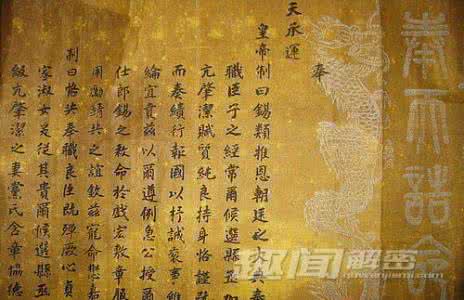 奉天誥命
奉
天承運
皇帝制曰錫類推恩朝廷之大典奉
職臣子之經常爾候選縣丞加
亢肇潔賦質純良持身恪謹
而奏績行報國以抒誠事維
綸宜賁茲以爾遵例急公授爾
仕郎錫之敕命於戲宏敷章服
用勵靖共之誼欽茲寵命懋嘉
制曰恪共奉職良臣既殫厥心貞
家淑女爰從其貴爾候選縣丞
級亢肇潔之妻黨氏含章協德
趣闻解密